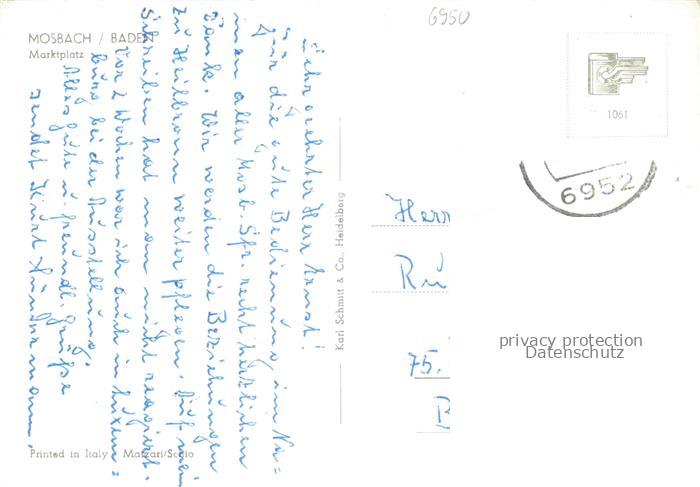 MOSBACH / BADEN
Marktplatz
6950
Sehr geehrter Herr Ernst!
Für die gute Bedienung im Na=
men aller Mosb. Sfr. recht herzlichen
Dank. Wir werden die Beziehungen
zu Heilbronn weiter pflegen. Auf mein
Schreiben hat man nicht reagiert.
Vor 2 Wochen war ich auch in Luxem=
burg bei der Ausstellung.
Alles Gute u. freundl. Grüße
sendet Kurt
Karl Schmitt & Co., Heidelberg
1061
6952
Herr
Ru
75.
privacy protection
Datenschutz
Printed in Italy Matzari/Schio